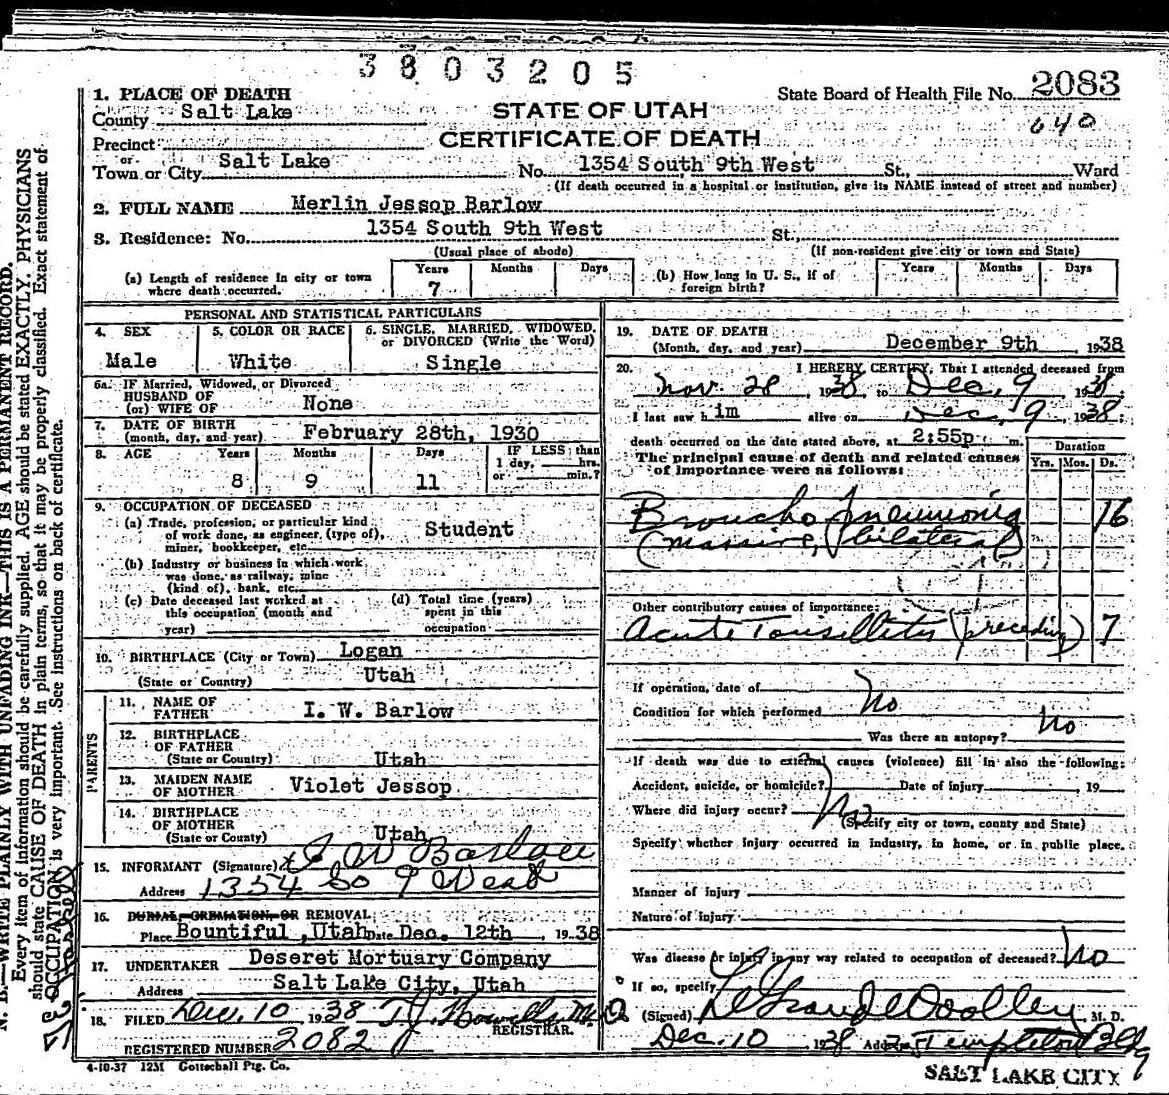 3803205
State Board of Health File No. 2083
640
1. PLACE OF DEATH
County Salt Lake
STATE OF UTAH
CERTIFICATE OF DEATH
Precinct
or
Town or City Salt Lake No. 1354 South 9th West St., Ward
(If death occurred in a hospital or institution, give its NAME instead of street and number)
2. FULL NAME Merlin Jessop Barlow
3. Residence: No. 1354 South 9th West St.
(Usual place of abode) (If non-resident give city or town and State)
(a) Length of residence in city or town where death occurred. Years 7 Months Days
(b) How long in U. S., if of foreign birth? Years Months Days
PERSONAL AND STATISTICAL PARTICULARS
4. SEX Male
5. COLOR OR RACE White
6. SINGLE, MARRIED, WIDOWED, or DIVORCED (Write the Word) Single
6a. IF Married, Widowed, or Divorced
HUSBAND OF
(or) WIFE OF None
7. DATE OF BIRTH
(month, day, and year) February 28th, 1930
8. AGE Years 8 Months 9 Days 11 IF LESS than 1 day, hrs. or min.?
9. OCCUPATION OF DECEASED
(a) Trade, profession, or particular kind
of work done, as engineer, (type of),
miner, bookkeeper, etc. Student
(b) Industry or business in which work
was done, as railway, mine
(kind of), bank, etc.
(c) Date deceased last worked at
this occupation (month and
year)
(d) Total time (years)
spent in this
occupation
10. BIRTHPLACE (City or Town) Logan
(State or Country) Utah
PARENTS
11. NAME OF
FATHER I. W. Barlow
12. BIRTHPLACE
OF FATHER
(State or Country) Utah
13. MAIDEN NAME
OF MOTHER Violet Jessop
14. BIRTHPLACE
OF MOTHER
(State or County) Utah
15. INFORMANT (Signature) I W Barlow
Address 1354 So 9 West
16. BURIAL, CREMATION, OR REMOVAL:
Place Bountiful, Utah Date Dec. 12th, 1938
17. UNDERTAKER Deseret Mortuary Company
Address Salt Lake City, Utah
18. FILED Dec. 10 1938 T. J. Howells M.D.
REGISTRAR.
REGISTERED NUMBER 2082
4-10-37 12M Gottschall Ptg. Co.
19. DATE OF DEATH
(Month, day, and year) December 9th, 1938
20. I HEREBY CERTIFY, That I attended deceased from
Nov. 28, 1938, to Dec, 9 1938;
I last saw him alive on Dec, 9 1938;
death occurred on the date stated above, at 2:55p m.
The principal cause of death and related causes
of importance were as follows:
Duration
Yrs. Mos. Ds.
Broncho pneumonia 16
(massive, bilateral)
Other contributory causes of importance:
Acute Tonsillitis (preceding) 7
If operation, date of No
Condition for which performed
Was there an autopsy? No
If death was due to external causes (violence) fill in also the following:
Accident, suicide, or homicide? Date of injury 19
Where did injury occur? No
(Specify city or town, county and State)
Specify whether injury occurred in industry, in home, or in public place.
Manner of injury
Nature of injury
Was disease or injury in any way related to occupation of deceased? No
If so, specify
(Signed) LeGrand Woolley, M. D.
Dec. 10 1938 Templeton Bldg
SALT LAKE CITY
N. B.—WRITE PLAINLY WITH UNFADING INK—THIS IS A PERMANENT RECORD.
Every item of information should be carefully supplied. AGE should be stated EXACTLY. PHYSICIANS
should state CAUSE OF DEATH in plain terms, so that it may be properly classified. Exact statement of
OCCUPATION is very important. See instructions on back of certificate.